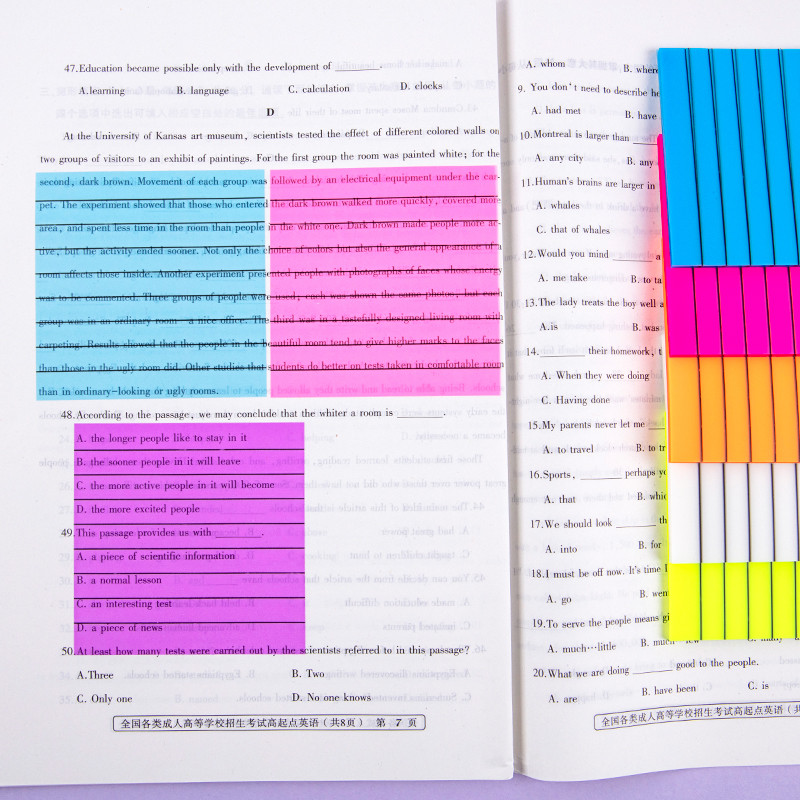 47.Education became possible only with the development of ______.
A.learning B. language C. calculation D. clocks
D
At the University of Kansas art museum, scientists tested the effect of different colored walls on
two groups of visitors to an exhibit of paintings. For the first group the room was painted white; for the
second, dark brown. Movement of each group was followed by an electrical equipment under the car-
pet. The experiment showed that those who entered the dark brown walked more quickly, covered more
area, and spent less time in the room than people in the white one. Dark brown made people more ac-
tive, but the activity ended sooner. Not only the choice of colors but also the general appearance of a
room affects those inside. Another experiment presented people with photographs of faces whose energy
was to be commented. Three groups of people were used; each was shown the same photos, but each
group was in an ordinary room—a nice office. The third was in a tastefully designed living room with
carpeting. Results showed that the people in the beautiful room tend to give higher marks to the faces
than those in the ugly room did. Other studies that students do better on tests taken in comfortable room
than in ordinary-looking or ugly rooms.
48.According to the passage, we may conclude that the whiter a room is ______.
A. the longer people like to stay in it
B. the sooner people in it will leave
C. the more active people in it will become
D. the more excited people
49.This passage provides us with ______.
A. a piece of scientific information
B. a normal lesson
C. an interesting test
D. a piece of news
50.At least how many tests were carried out by the scientists referred to in this passage?
A.Three B. Two
C. Only one D. No one knows
全国各类成人高等学校招生考试高起点英语(共8页) 第 7 页
A. whom B. where
9. You don't need to describe he
A. had met B. have
10.Montreal is larger than
A. any city B. any
11.Human's brains are larger in
A. whales
C. that of whales
12.Would you mind ______ a
A. me take B. to ta
13.The lady treats the boy well a
A.is B. was
14.______ their homework, t
A. When they were doing
C. Having done
15.My parents never let me
A. to travel B. to tr
16.Sports, ______ perhaps yo
A. that B. whic
17.We should look ______ th
A. into B. for
18.I must be off now. It's time I
A. go B. wen
19.To serve the people means gi
A. much…little B. much
20.What we are doing ______ good to the people.
A. are B. have been C. is
全国各类成人高等学校招生考试高起点英语(共